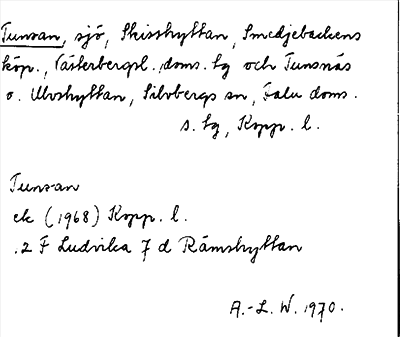 Tunsan, sjö, Skisshyttan, Smedjebackens
köp., Västerbergsl. doms. tg och Tunsnäs
o. Ulvshyttan, Silvbergs sn, Falu doms.
s. tg, Kopp. l.
Tunsan
ek (1968) Kopp. l.
.2 F Ludvika 7 d Rämshyttan
A.-L. W. 1970.